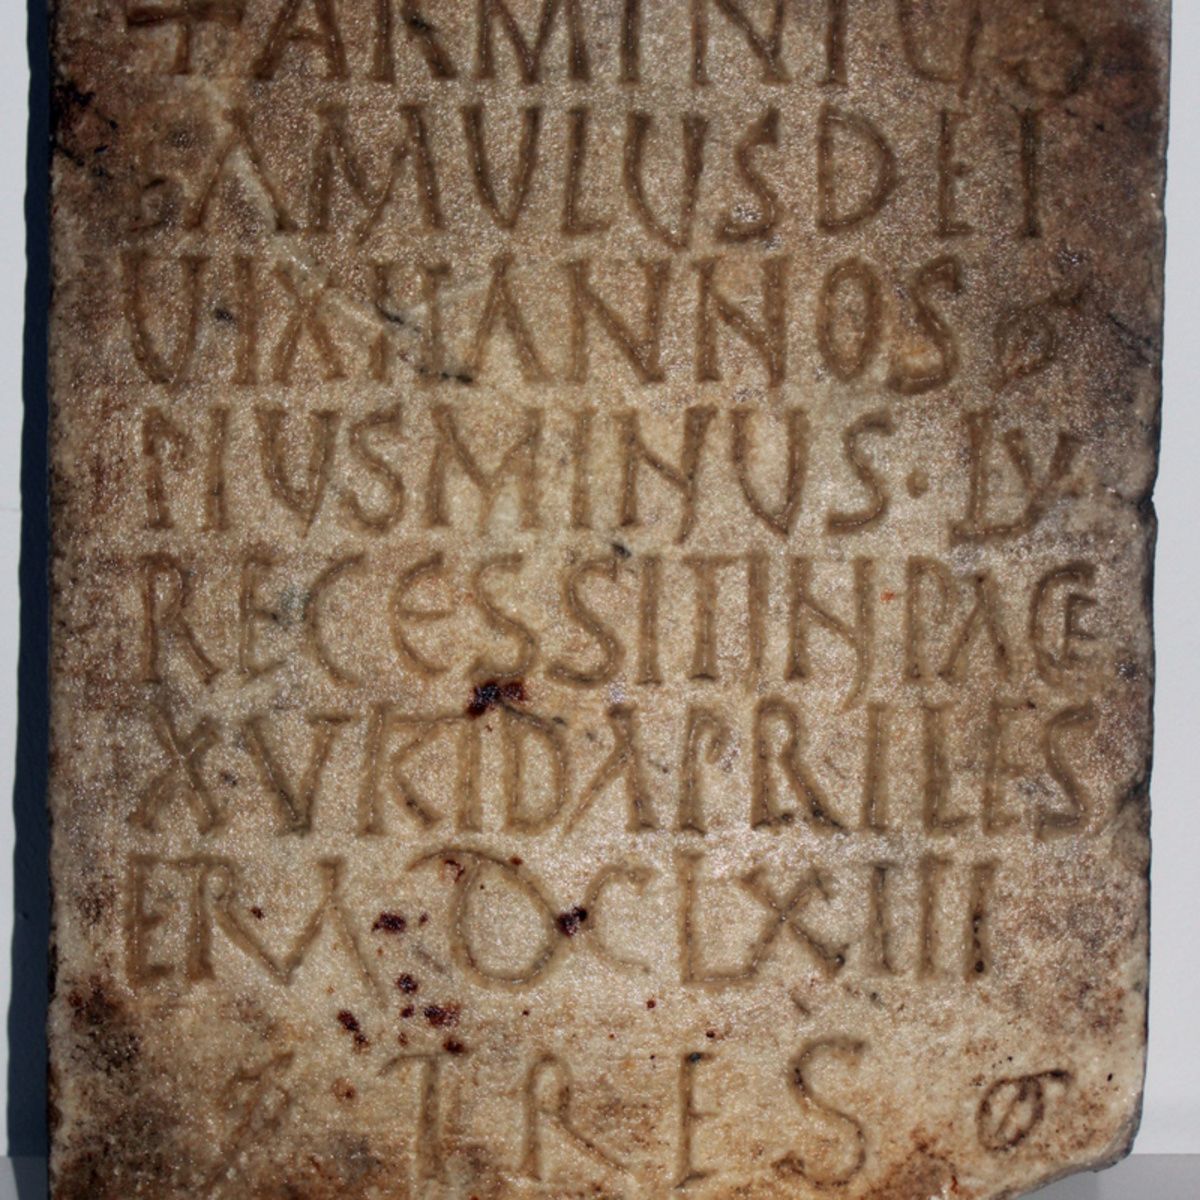 + ARMINIUS
FAMULUS DEI
UIXIT ANNOS
PLUS MINUS · LV
RECESSIT IN · PACE
XV KLD APRILES
ERA DCLXIII
TRES